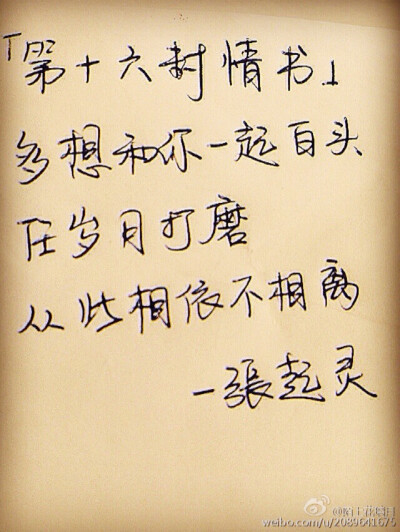 「第十六封情书」
多想和你一起白头
任岁月打磨
从此相依不相离
—張起灵
weibo.com/u/2089641675